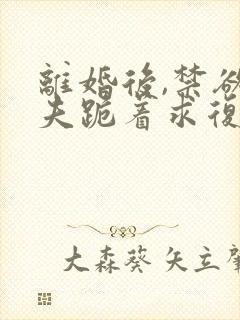 離婚後,禁欲
夫跪着求復
大森葵 矢立肇